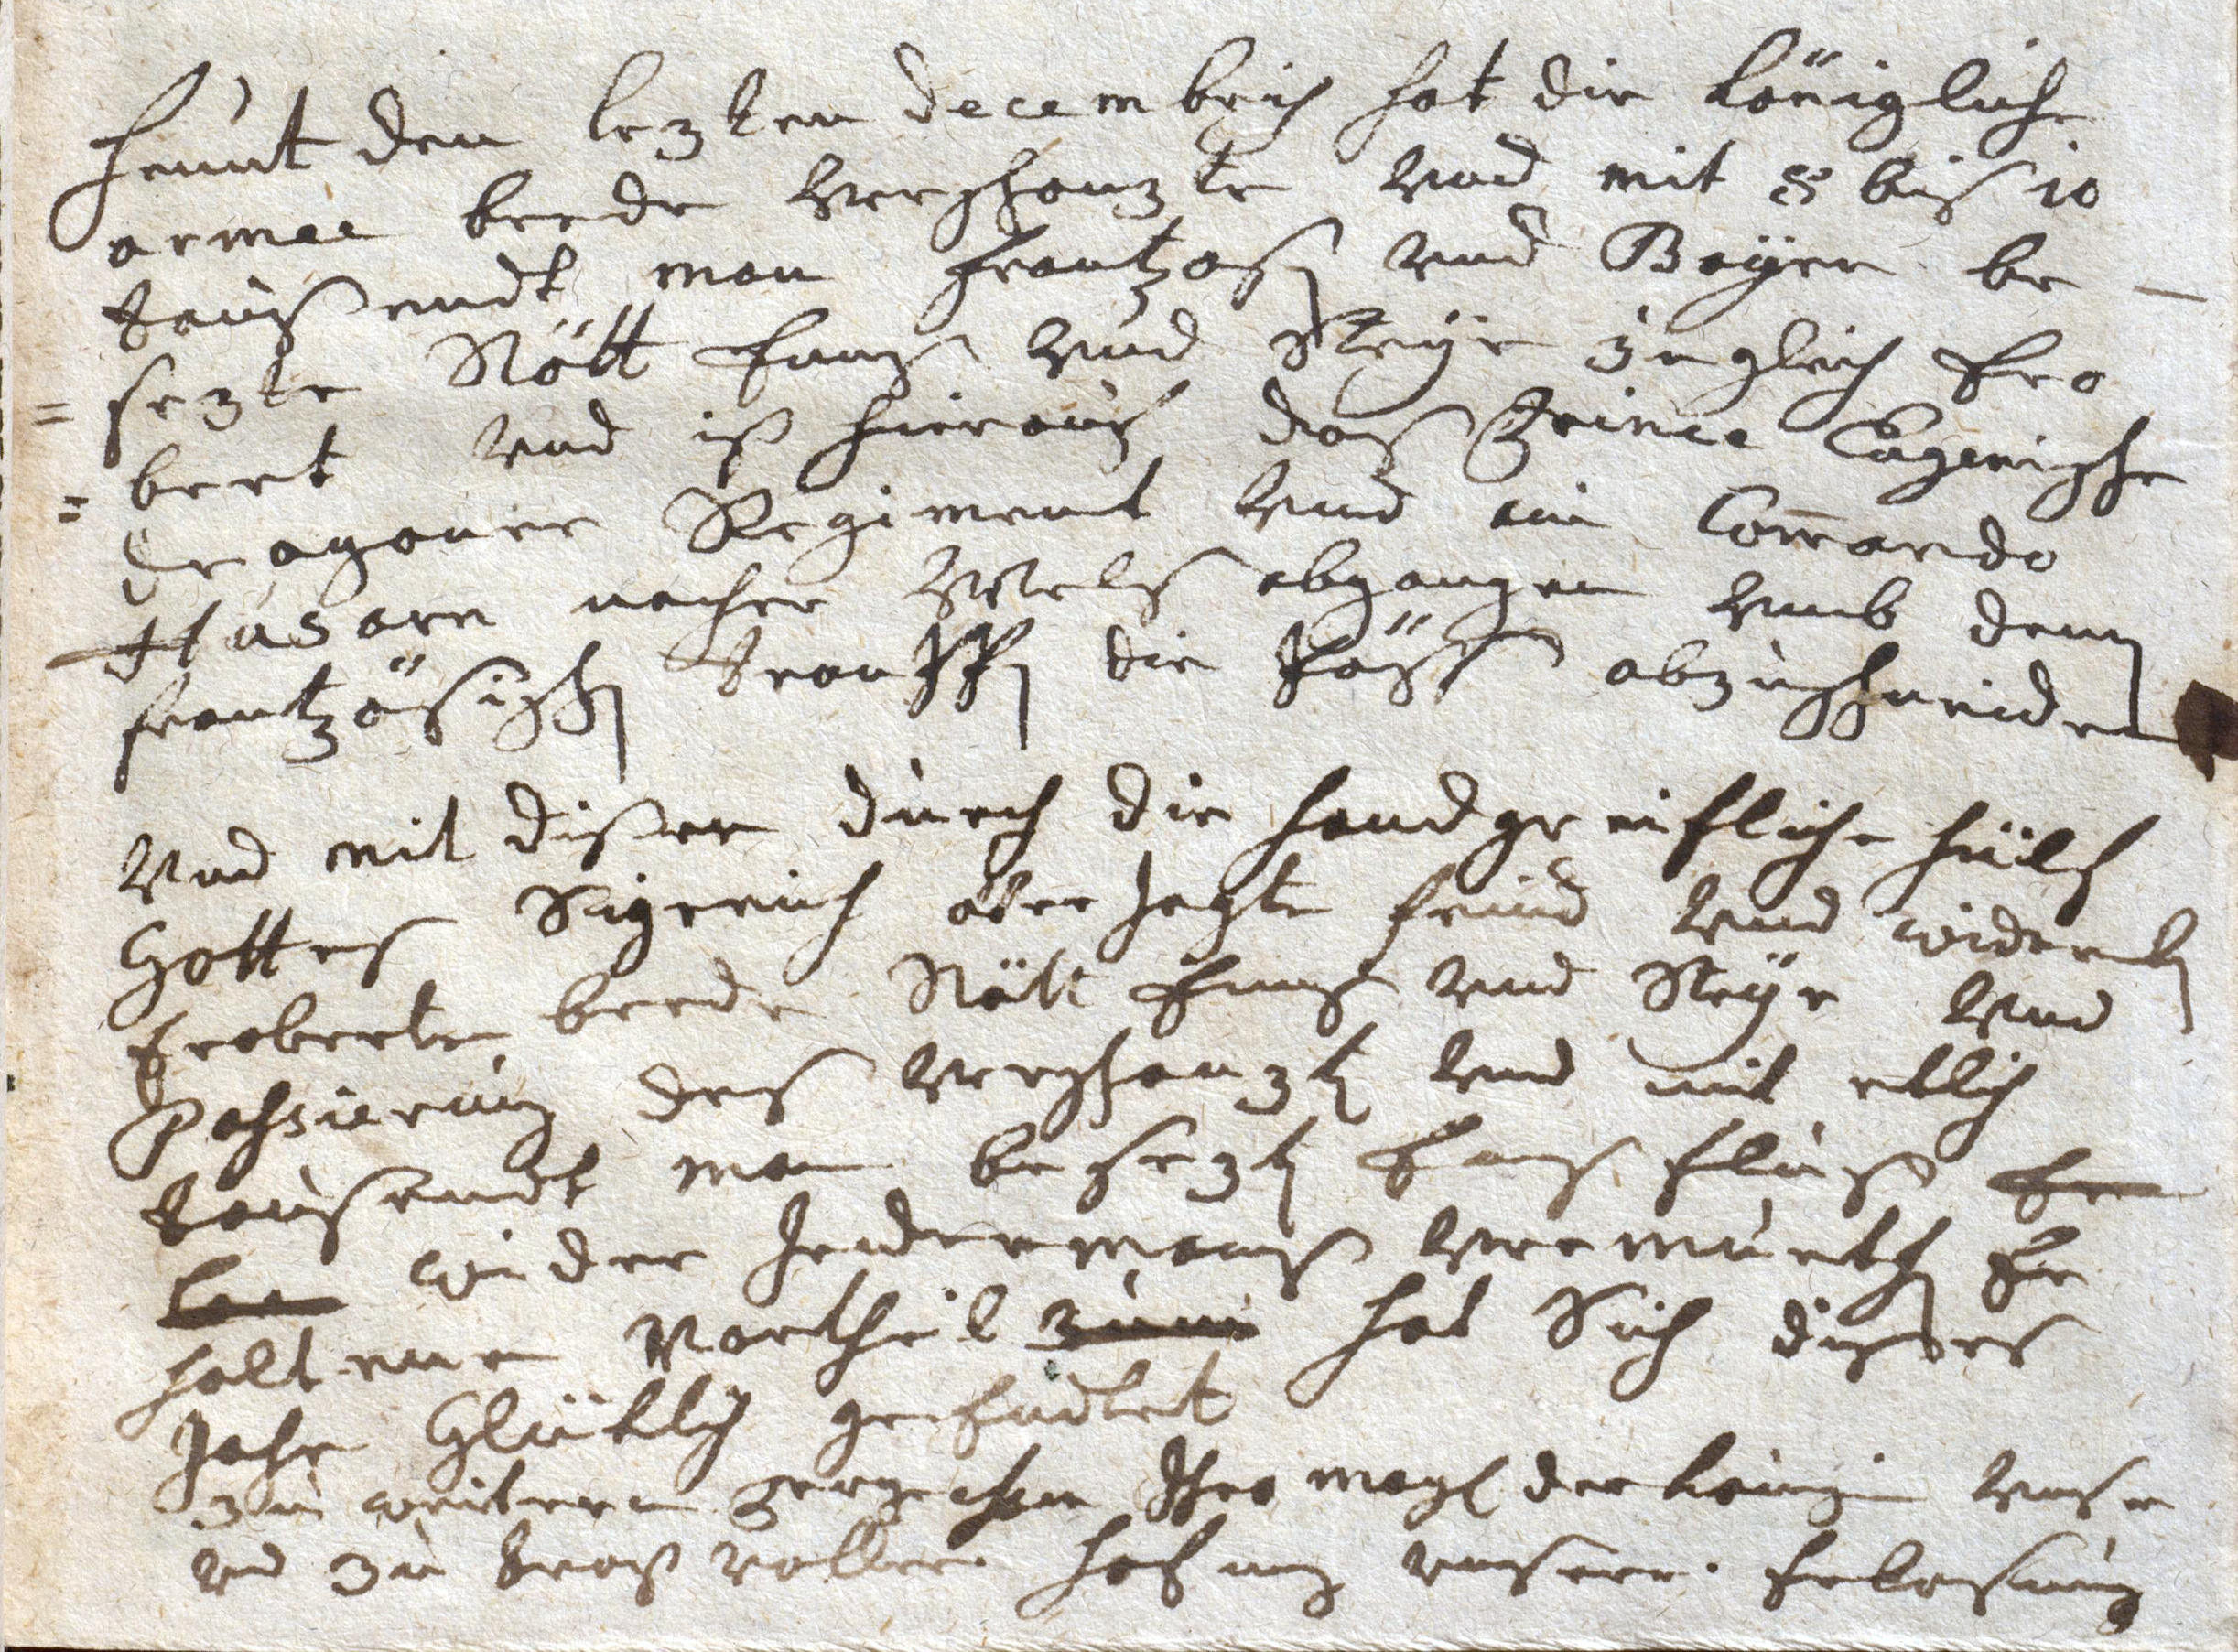 Heunt den lezten decembris hat die königliche
armee beede verschanzte vnd mit 8 bis 10
tausendt man Frantzosen vnd Bayrn be –
= sezte Stött Enns vnd Steÿr zu gleich Ero
= bert vnd ist hierauf das Prince Eugenische
Dragoner Regiment vnd ein Com̄ando
Husarn nacher Wels abgangen vmb denen
frantzösischen die Päss abzuschneiden
Vnd mit diser durch die handgreifliche hülf
Gottes Sigreich feind vnd widerumb
Eroberte beede Stött Enns vnd Steÿr vnd
Passierung des verschanzten vnd mit etlich
tausendt man besezten Ens flus
wider Jedermans vermueten Er
haltenen Vortheil hat Sich dises
Jahr Glüklich geendtet
zu weiteren Ihro mayt der königin vnser
vnd zu trost voller hofnung vnserer Erlesung